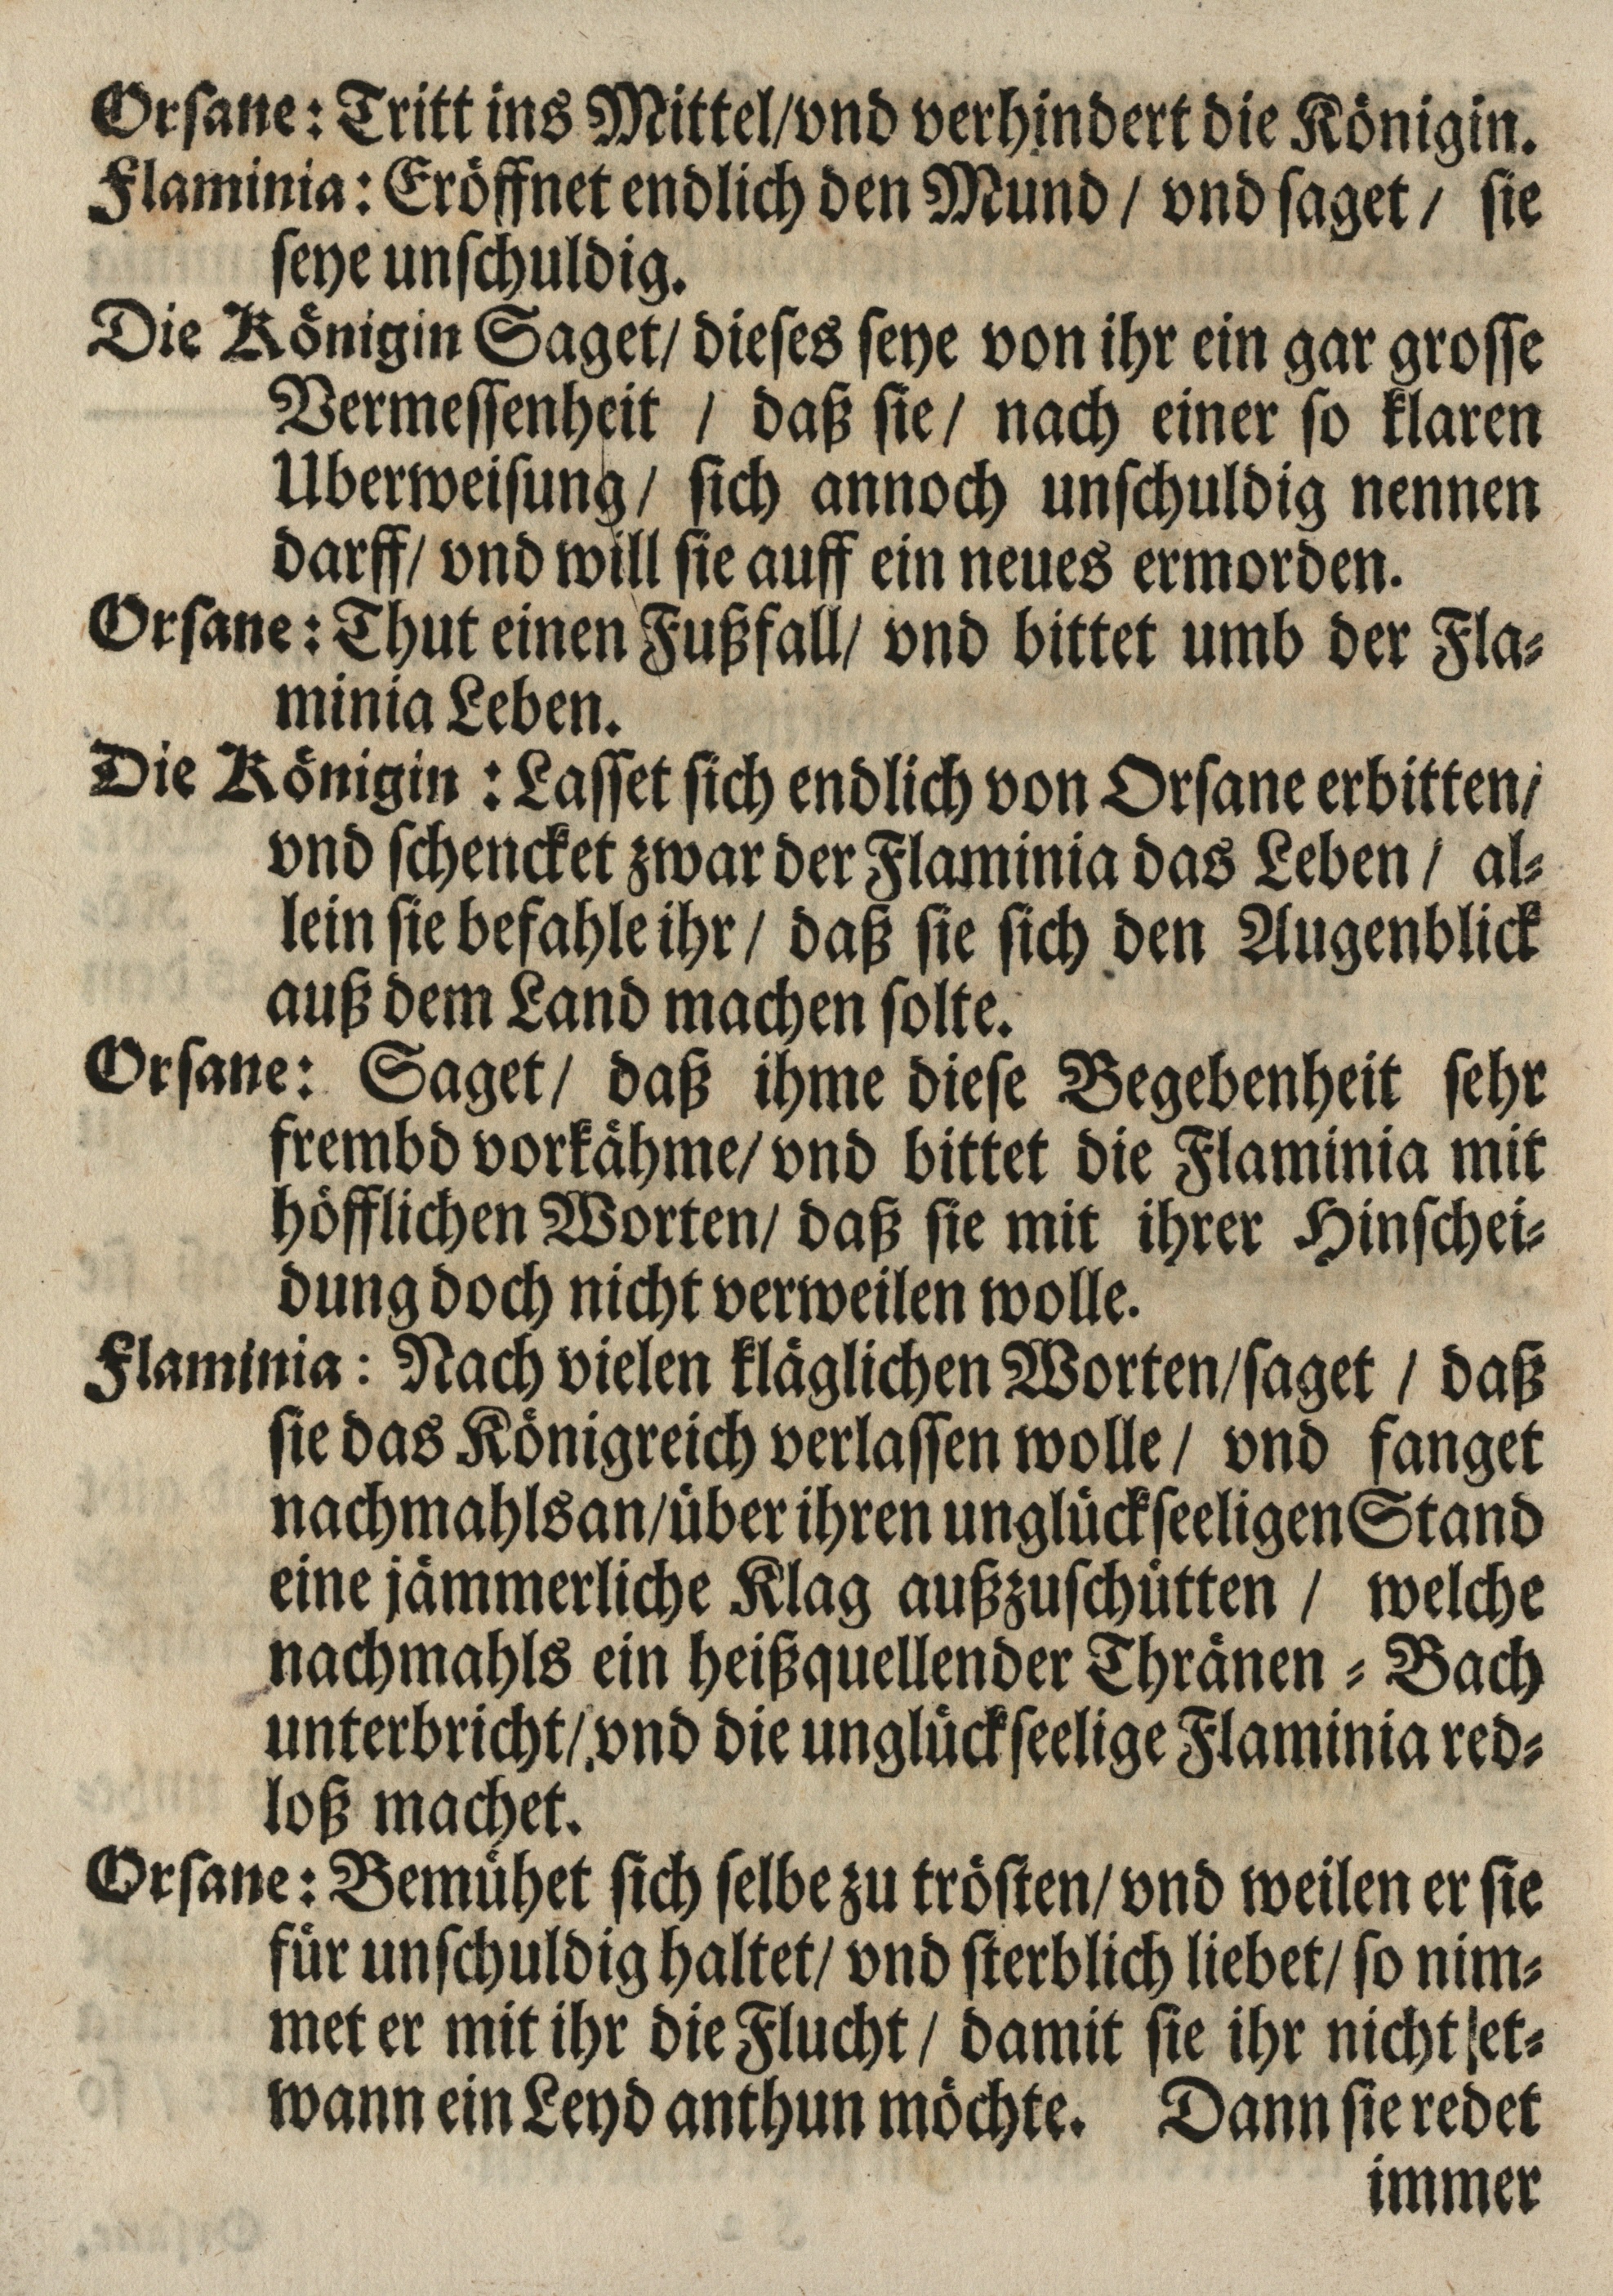 Orſane: Tritt ins Mittel/vnd verhindert die Königin.
Flaminia: Eröffnet endlich den Mund / vnd ſaget / ſie
ſeye unſchuldig.
Die Königin Saget/ dieſes ſeye von ihr ein gar groſſe
Vermeſſenheit / daß ſie/ nach einer ſo klaren
Uberweiſung/ ſich annoch unſchuldig nennen
darff/ vnd will ſie auff ein neues ermorden.
Orſane: Thut einen Fußfall/ vnd bittet umb der Fla⸗
minia Leben.
Die Königin : Laſſet ſich endlich von Orſane erbitten/
vnd ſchencket zwar der Flaminia das Leben / al⸗
lein ſie befahle ihr / daß ſie ſich den Augenblick
auß dem Land machen ſolte.
Orſane: Saget/ daß ihme dieſe Begebenheit ſehr
frembd vorkähme/ vnd bittet die Flaminia mit
höfflichen Worten/ daß ſie mit ihrer Hinſchei⸗
dung doch nicht verweilen wolle.
Flaminia: Nach vielen kläglichen Worten/ſaget / daß
ſie das Königreich verlaſſen wolle / vnd fanget
nachmahls an/über ihren unglückſeeligen Stand
eine jämmerliche Klag außzuſchütten / welche
nachmahls ein heißquellender Thränen ⸗ Bach
unterbricht/ vnd die unglückſeelige Flaminia red⸗
loß machet.
Orſane: Bemühet ſich ſelbe zu tröſten/ vnd weilen er ſie
für unſchuldig haltet/ vnd ſterblich liebet/ ſo nim⸗
met er mit ihr die Flucht / damit ſie ihr nicht et⸗
wann ein Leyd anthun möchte. Dann ſie redet
immer